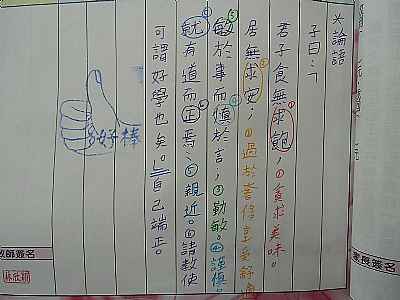 ※論語
子曰:「
君子食無求飽,①貪求美味。
居無求安,②過於奢侈享受舒適
敏於事而慎於言,③勤敏。④謹慎。
就有道而正焉,⑤親近。⑥請教使
可謂好學也矣。」自己端正。
好棒
師簽名
家長簽名